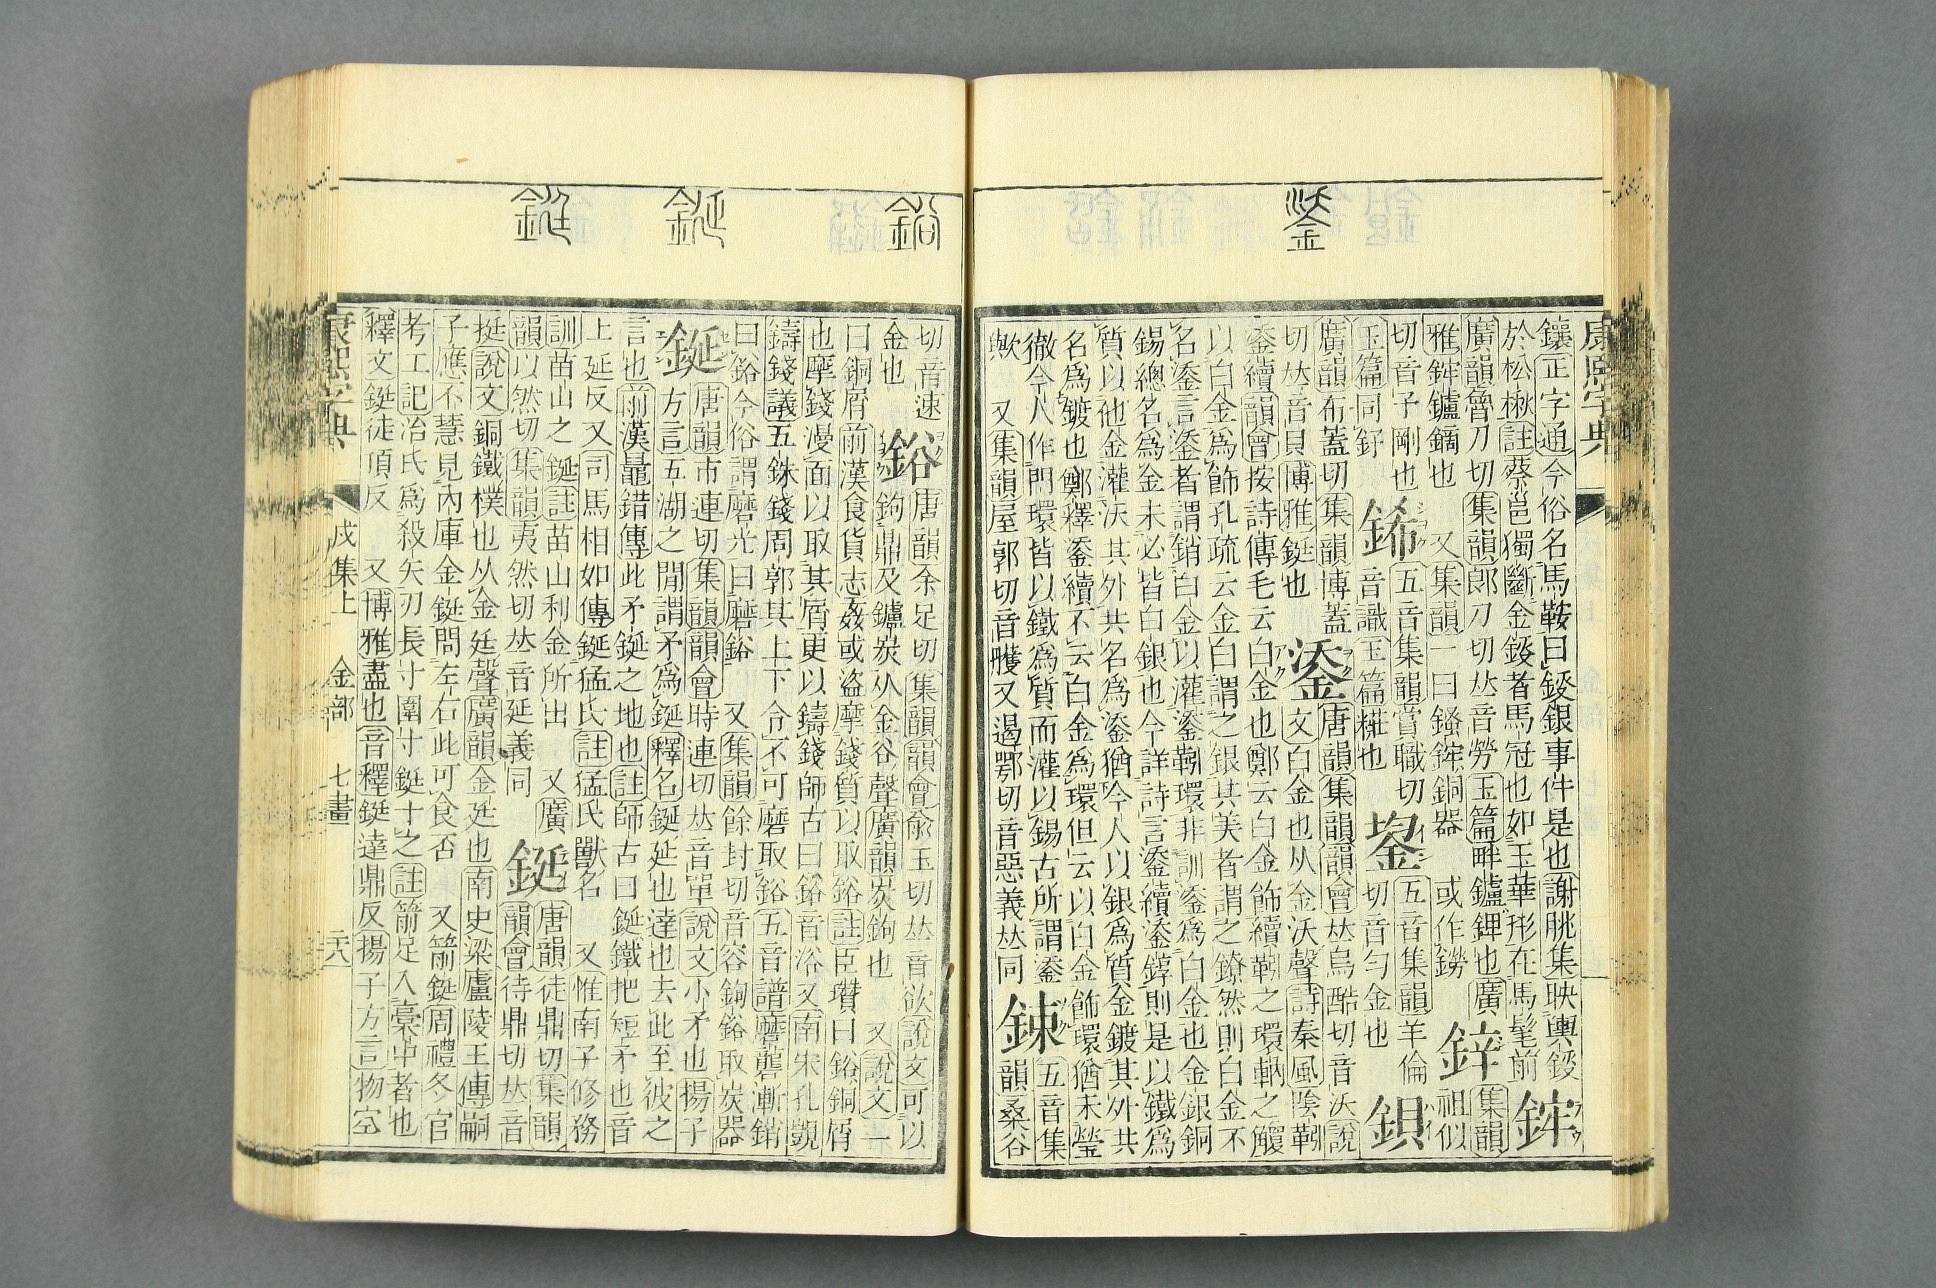 鋈
康熙字典
鑲正字通今俗名馬鞍曰錽銀事件是也謝朓集映輿錽
於松楸註蔡邕獨斷金錽者馬冠也如玉華形在馬髦前
廣韻魯刀切集韻郎刀切𠀤音勞玉篇畔鑪鋰也廣
雅鑪鏑也 又集韻一曰銅器 或作鐒
鋅
集韻
祖似
切音子剛也
玉篇同釨
鋿
五音集韻賞職切
音識玉篇糚也
五音集韻羊倫
切音勻金也
鋇
廣韻布蓋切集韻博蓋
切𠀤音貝博雅鋌也
鋈
唐韻集韻韻會𠀤烏酷切音沃說
文白金也从金沃聲詩秦風陰靷
鋈續韻會按詩傳毛云白金也鄭云白金飾續靷之環軜之觼
以白金爲飾孔疏云金白謂之銀其美者謂之鐐然則白金不
名鋈言鋈者謂銷白金以灌鋈靷環非訓鋈爲白金也金銀銅
錫總名爲金未必皆白銀也今詳詩言鋈續鋈錞則是以鐵爲
質以他金灌沃其外共名爲鋈猶今人以銀爲質金鍍其外共
名爲鍍也鄭釋鋈續不云白金爲環但云以白金飾環猶未瑩
徹今人作門環皆以鐵爲質而灌以錫古所謂鋈
歟 又集韻屋郭切音雘又遏鄂切音惡義𠀤同
鋉
五音集
韻桑谷
鋊
鋋
鋌
切音速
金也
鋊
唐韻余足切集韻韻會兪玉切𠀤音欲說文可以
鉤鼎及鑪炭从金谷聲廣韻炭鉤也 又說文一
曰銅屑前漢食貨志姦或盜摩錢質以取鋊註臣瓚曰鋊銅屑
也摩錢漫面以取其屑更以鑄錢師古曰鋊音浴又南宋孔覬
鑄錢議五銖錢周郭其上下令不可磨取鋊五音譜磨礱漸銷
曰鋊今俗謂磨光曰磨鋊 又集韻餘封切音容鉤鋊取炭器
鋋
唐韻市連切集韻韻會時連切𠀤音單說文小矛也揚子
方言五湖之閒謂矛爲鋋釋名鋋延也達也去此至彼之
言也前漢鼂錯傳此矛鋋之地也註師古曰鋋鐵把短矛也音
上延反又司馬相如傳鋋猛氏註猛氏獸名 又惟南子修務
訓苗山之鋋註苗山利金所出 又廣
韻以然切集韻夷然切𠀤音延義同
鋌
唐韻徒鼎切集韻
韻會待鼎切𠀤音
挺說文銅鐵樸也从金廷聲廣韻金廷也南史梁廬陵王傳嗣
子應不慧見內庫金鋌問左右此可食否 又箭鋌周禮冬官
考工記冶氏爲殺矢刃長寸圍寸鋌十之註箭足入稾中者也
釋文鋌徒頂反 又博雅盡也音釋鋌達鼎反揚子方言物空
康熙字典
戌集上
金部
七畫
二八